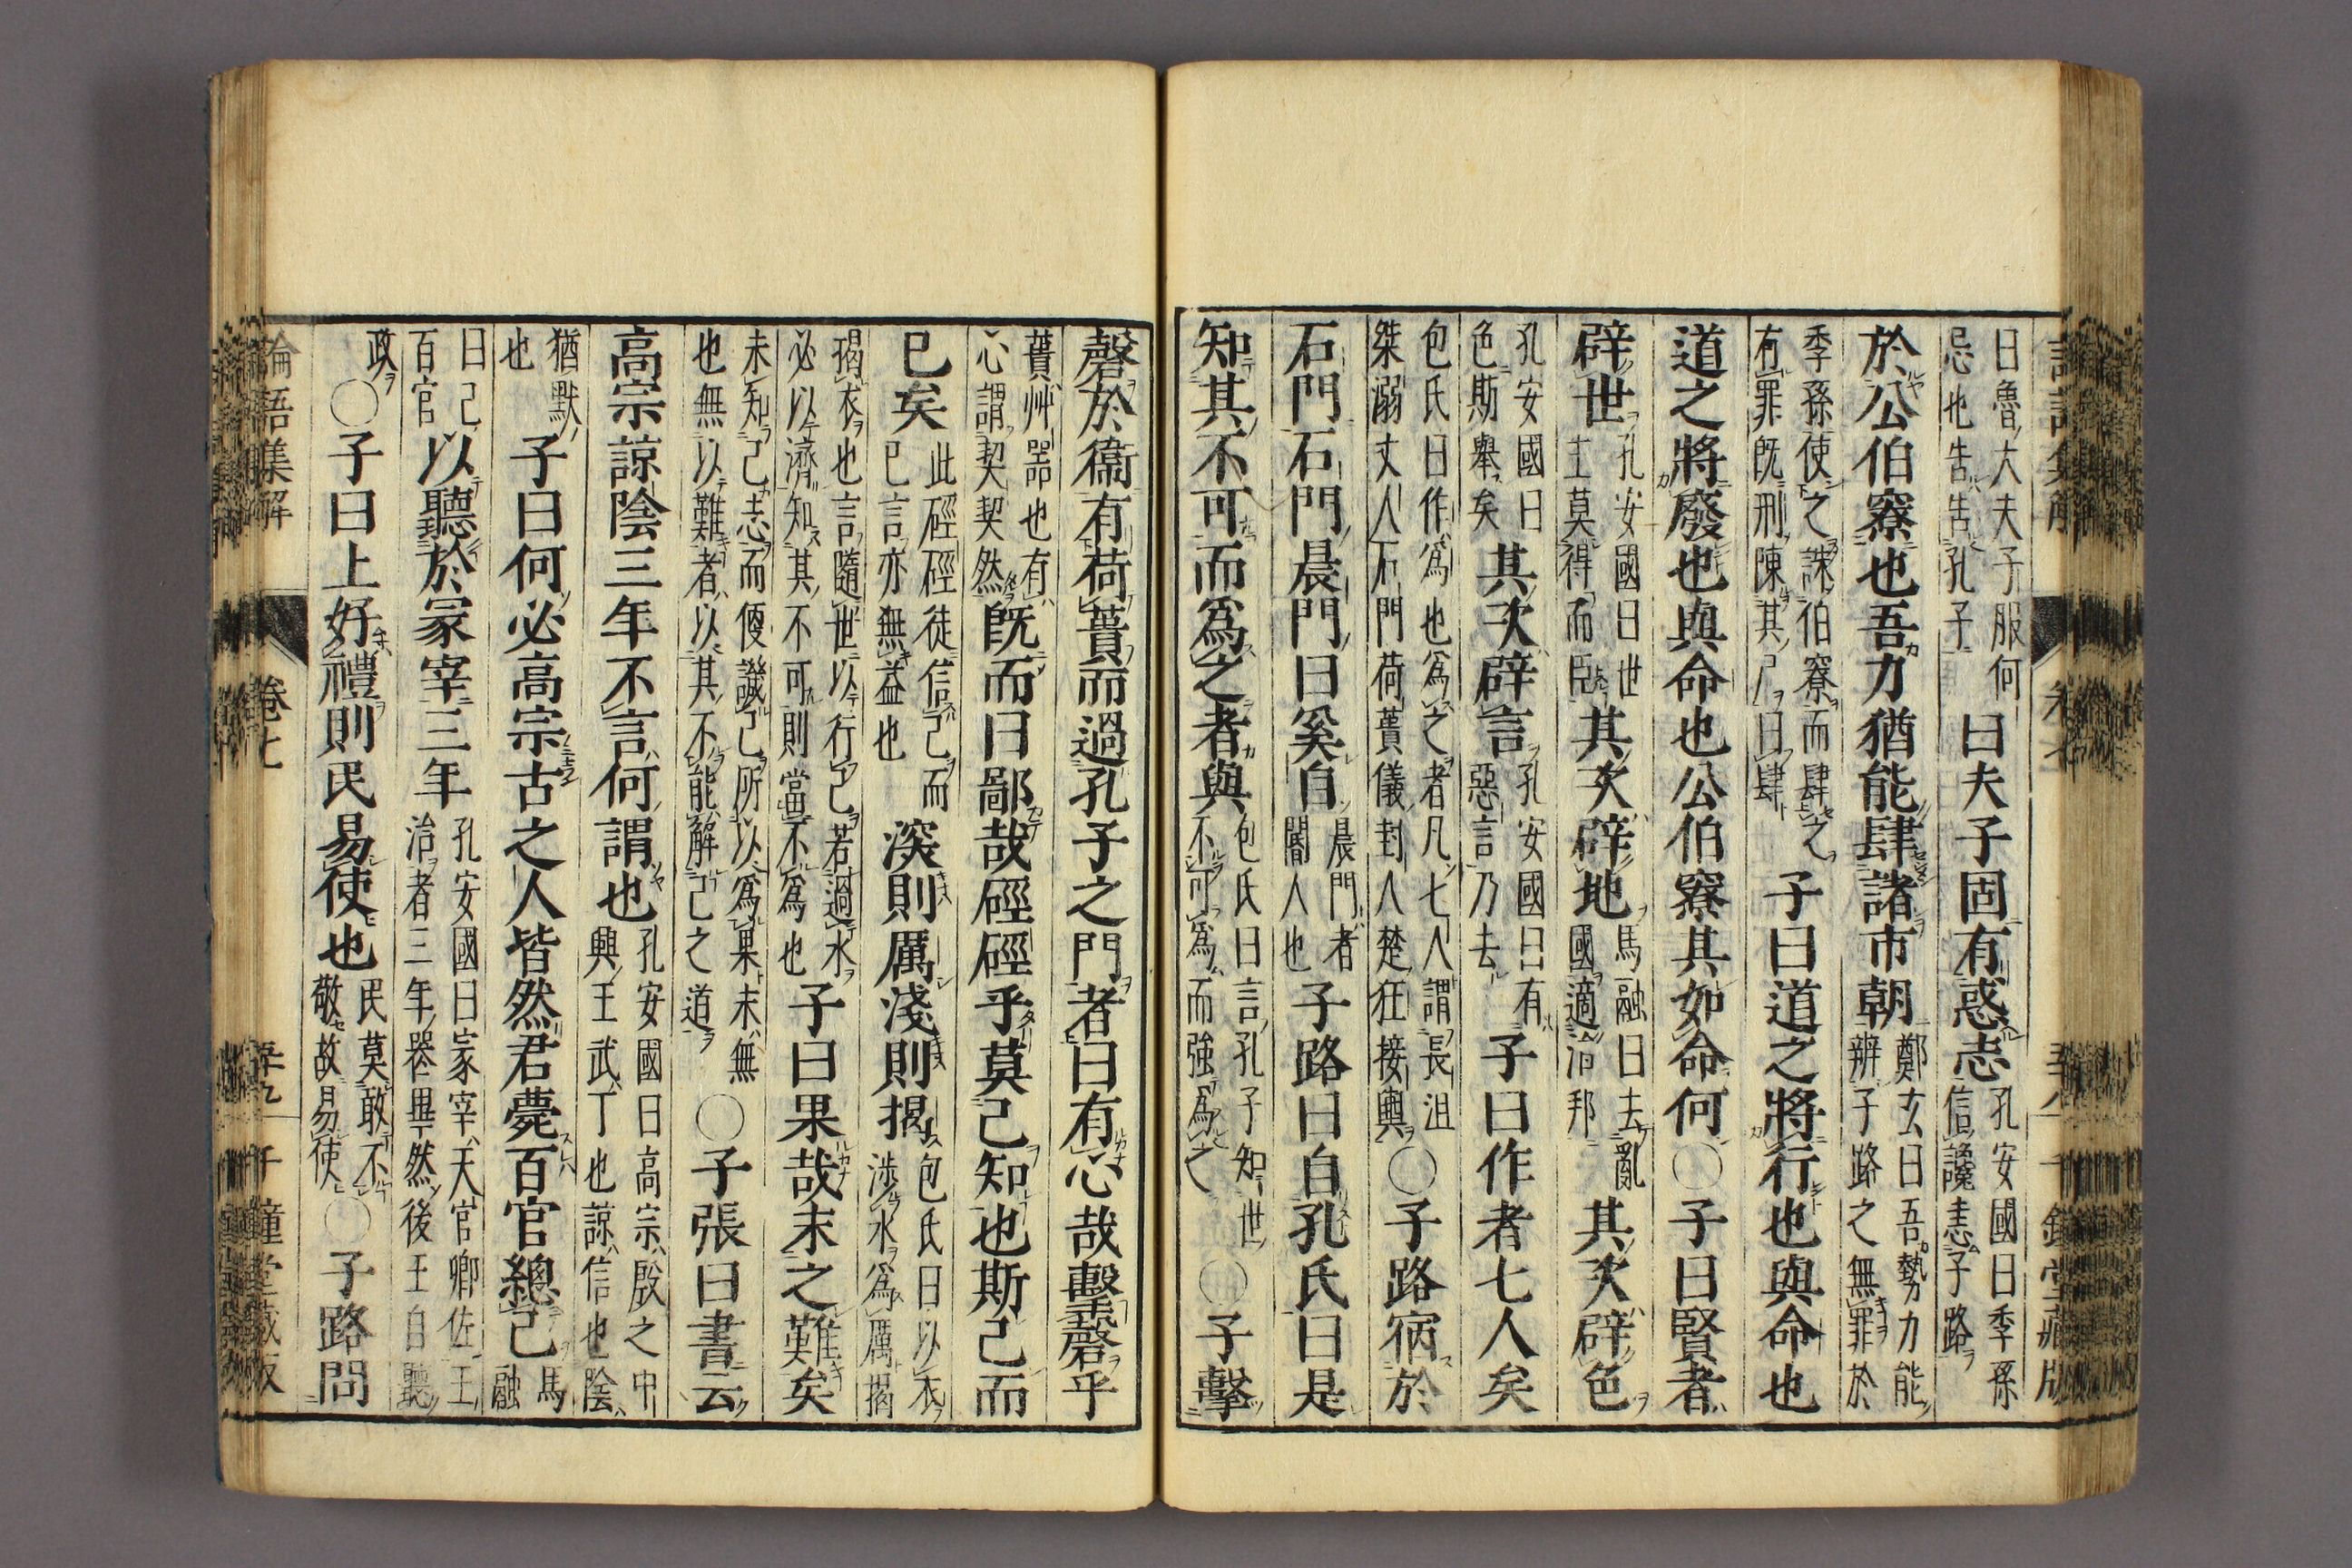 曰魯大夫子服何
忌也告告孔子
曰夫子固有惑志
孔安國曰季孫
信讒恚子路
於公伯寮也吾力猶能肆諸市朝
鄭玄曰吾勢力能
辨子路之無罪於
季孫使之誅伯寮而肆之
有罪既刑陳其尸曰肆
子曰道之將行也與命也
道之將廢也與命也公伯寮其如命何○子曰賢者
辟世
孔安國曰世
主莫得而臣
其次辟地
馬融曰去亂
國適治邦
其次辟色
孔安國曰
色斯舉矣
其次辟言
孔安國曰有
惡言乃去
子曰作者七人矣
包氏曰作爲也爲之者凡七人謂長沮
桀溺丈人石門荷蕢儀封人楚狂接輿
○子路宿於
石門石門晨門曰奚自
晨門者
閽人也
子路曰自孔氏曰是
知其不可而爲之者與
包氏曰言孔子知世
不可爲而強爲之
○子擊
磬於衞有荷蕢而過孔子之門者曰有心哉擊磬乎
蕢艸器也有
心謂契契然
既而曰鄙哉硜硜乎莫己知也斯己而
已矣
此硜硜徒信己而
已言亦無益也
深則厲淺則揭
包氏曰以衣
涉水爲厲揭
揭衣也言隨世以行己若過水
必以濟知其不可則當不爲也
子曰果哉末之難矣
未知己志而便譏己所以爲果末無
也無以難者以其不能解己之道
○子張曰書云
高宗諒陰三年不言何謂也
孔安國曰高宗殷之中
興王武丁也諒信也陰
猶默
也
子曰何必高宗古之人皆然君薨百官總己
馬
融
曰己
百官
以聽於冢宰三年
孔安國曰冢宰天官卿佐王
治者三年喪畢然後王自聽
政
○子曰上好禮則民易使也
民莫敢不
敬故易使
○子路問
論語集解
卷七
五九
千鐘堂藏版